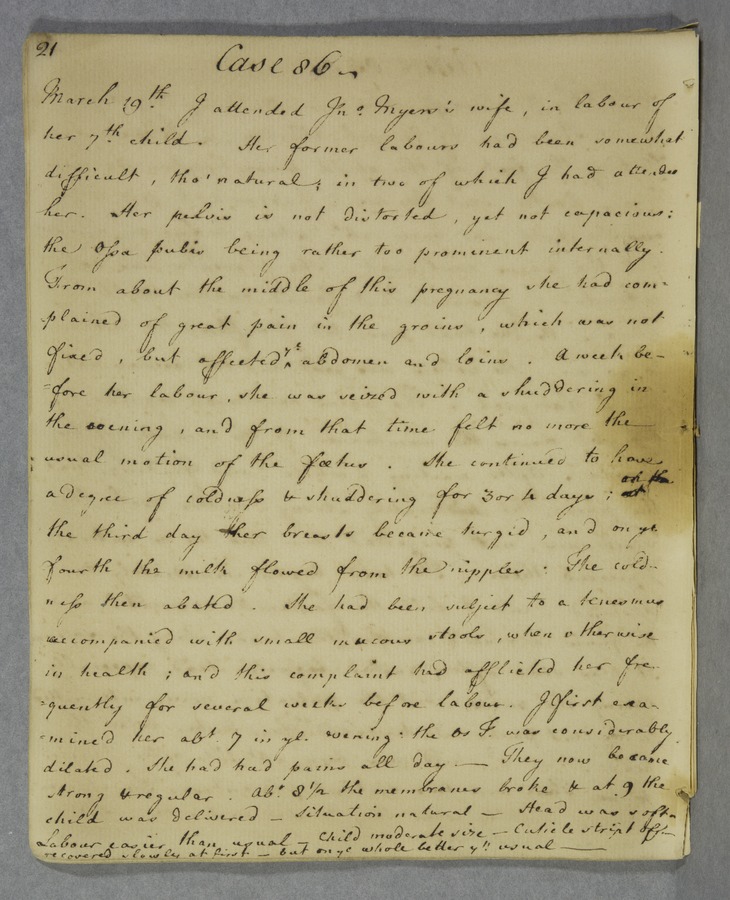 21
Case 86
March 19th. I attended Jno. Myers's wife, in labour of
her 7th child. Her former labours had been somewhat
difficult, tho' natural; in two of which I had attended
her. Her pelvis is not distorted, yet not capacious:
the Ossa pubis being rather too prominent internally.
From about the middle of this pregnancy she had com-
plained of great pain in the groins, which was not
fixed, but affected ye abdomen and loins. A week be-
=fore her labour, she was seized with a shuddering in
the evening, and from that time felt no more the
usual motion of the fœtus. She continued to have
a degree of coldness & shuddering for 3 or 4 days; on the
the third day her breasts became turgid, and on ye
fourth the milk flowed from the nipples: The cold-
ness then abated. She had been subject to a tenesmus
accompanied with small mucous stools, when otherwise
in health; and this complaint had afflicted her fre-
=quently for several weeks before labour. I first exa-
=mined her abt. 7 in ye. evening: the Os T. was considerably
dilated. She had had pains all day — They now became
strong & regular. Abt. 8 1/2 the membranes broke & at 9 the
child was delivered — Situation natural — Head was soft —
Labour easier than usual — Child moderate size — Cuticle stript off —
recovered slowly at first — but on ye whole better yn usual —